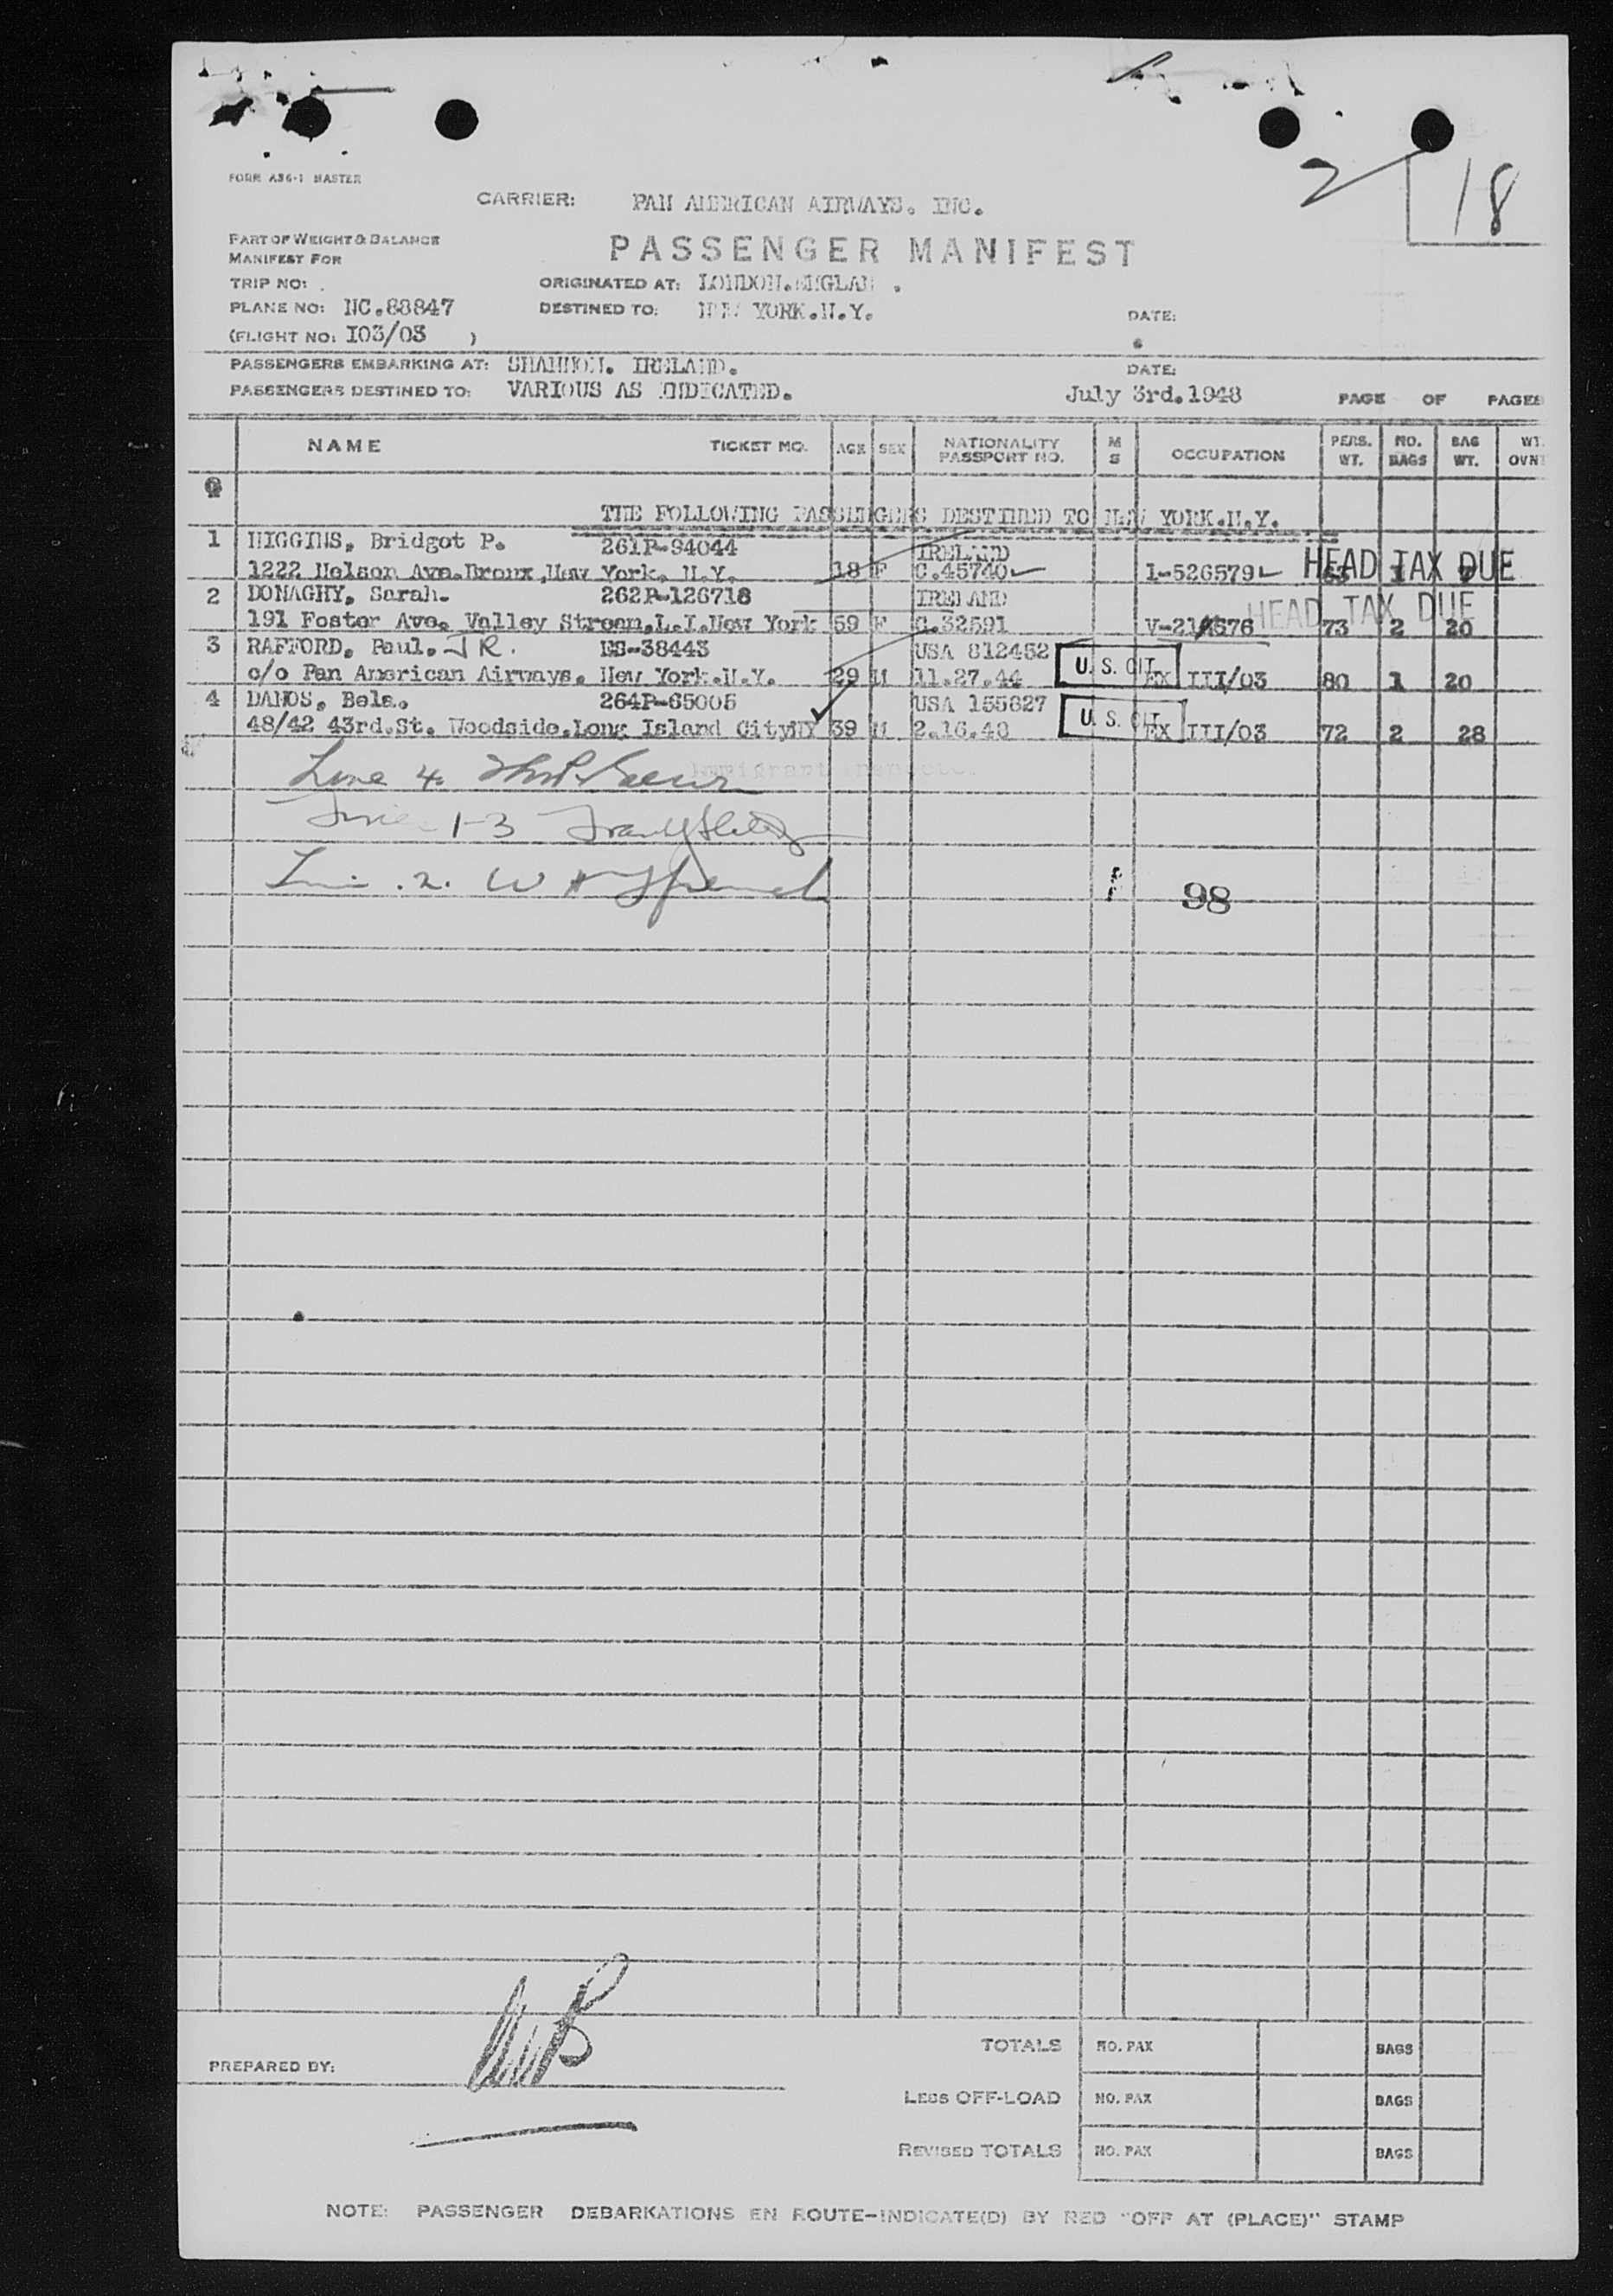 2 18
FORM A36-1 MASTER
CARRIER: PAN AMERICAN AIRWAYS. INC.
PART OF WEIGHT & BALANCE
MANIFEST FOR
PASSENGER MANIFEST
TRIP NO: .
ORIGINATED AT: LONDON.ENGLAN .
PLANE NO: NC.88847
DESTINED TO: NEW YORK.N.Y.
DATE:
(FLIGHT NO: I03/03 )
PASSENGERS EMBARKING AT: SHANNON. IRELAND.
DATE:
PASSENGERS DESTINED TO: VARIOUS AS INDICATED.
July 3rd.1948
PAGE OF PAGES
NAME TICKET NO. AGE SEX NATIONALITY PASSPORT NO. M S OCCUPATION PERS. WT. NO. BAGS BAG WT. WT. OVN
THE FOLLOWING PASSENGERS DESTINED TO NEW YORK.N.Y.
1 HIGGINS, Bridget P. 261P-94044 IRELAND
1222 Nelson Ave.Bronx,New York. N.Y. 18 F C.45740 I-526579 HEAD TAX DUE
2 DONAGHY, Sarah. 262P-126718 IRELAND HEAD TAX DUE
191 Foster Ave. Valley Stream.L.I.New York 59 F C.32591 73 2 20
3 RAFFORD, Paul. JR. ES-38443 USA 812452
c/o Pan American Airways. New York.N.Y. 29 M 11.27.44 U. S. CIT. EX III/03 80 1 20
4 DANOS, Bela. 264P-65005 USA 155627
48/42 43rd.St. Woodside.Long Island CityNY 39 M 2.16.48 U. S. CIT. EX III/03 72 2 28
Immigrant Inspector
Line 4.
Line 1-3
Line 2. W
98
PREPARED BY:
TOTALS NO. PAX BAGS
LESS OFF-LOAD NO. PAX BAGS
REVISED TOTALS NO. PAX BAGS
NOTE: PASSENGER DEBARKATIONS EN ROUTE-INDICATE(D) BY RED "OFF AT (PLACE)" STAMP